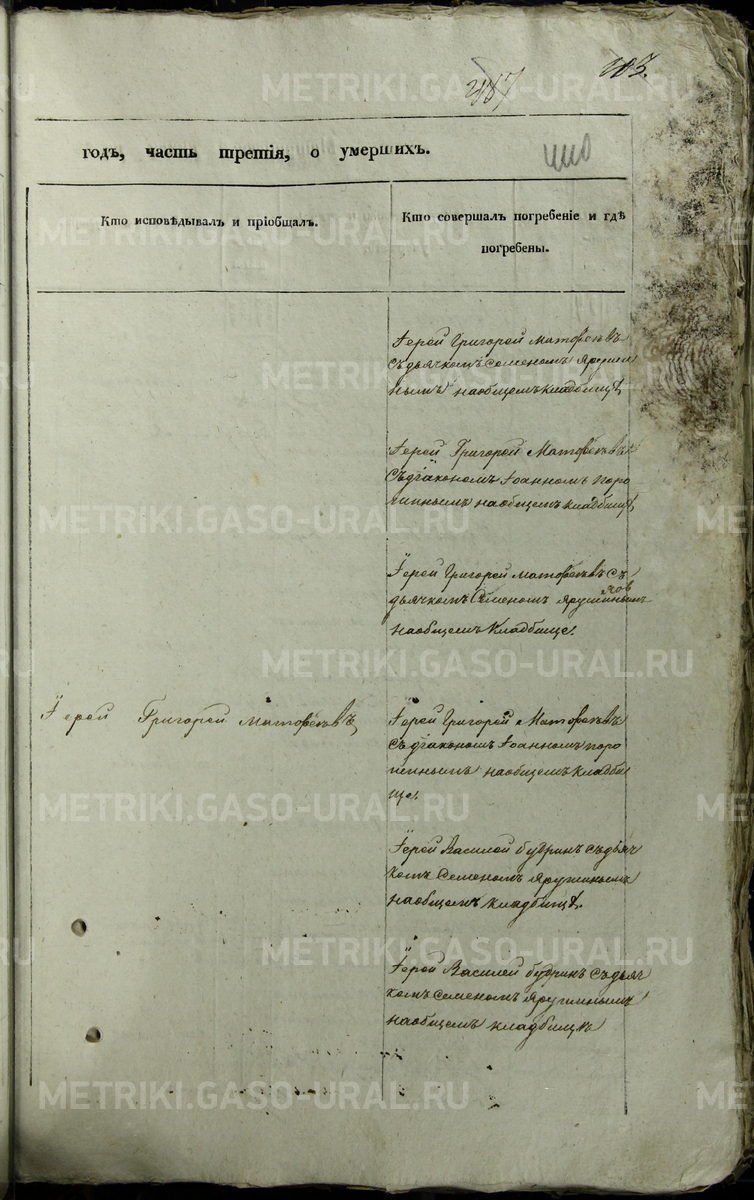 годъ, часть третія, о умершихъ.
Кто исповѣдывалъ и пріобщалъ.
Кто совершалъ погребеніе и гдѣ
погребены.
Іерей Григорей
Съ дьячкомъ Семеномъ
нымъ на общемъ кладбищѣ
Іерей Григорей
Съ діакономъ Іоанномъ поро
шинымъ на общемъ кладбищѣ
Іерей Григорей съ
дьячкомъ Семеномъ
на общемъ кладбище.
Іерей Григорей
Іерей Григорей
Съ діакономъ Іоанномъ поро
на общемъ кладби
ще.
Іерей Василей будринъ съ дьяч
комъ Семеномъ Ярушинымъ
на общемъ кладбищѣ.
Іерей Василей будринъ съ дьяч
комъ семеномъ Ярушинымъ
на общемъ кладбищѣ
METRIKI.GASO-URAL.RU